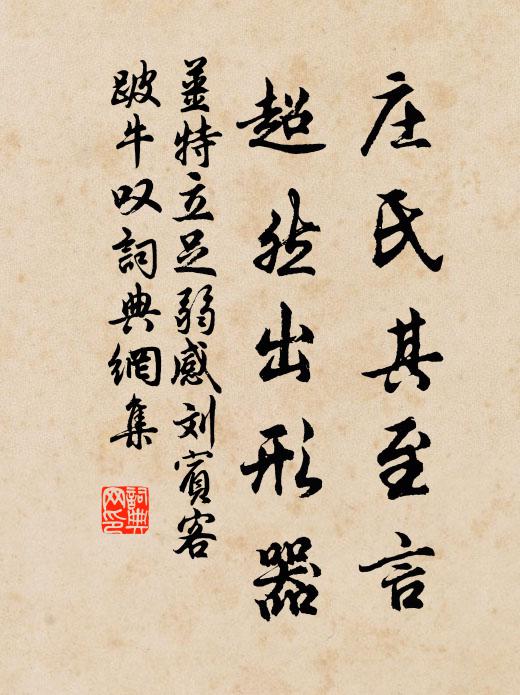 庄氏其至言
超然出形器
姜特立足弱感刘賓客
跛牛叹詞典網集
詞典网印